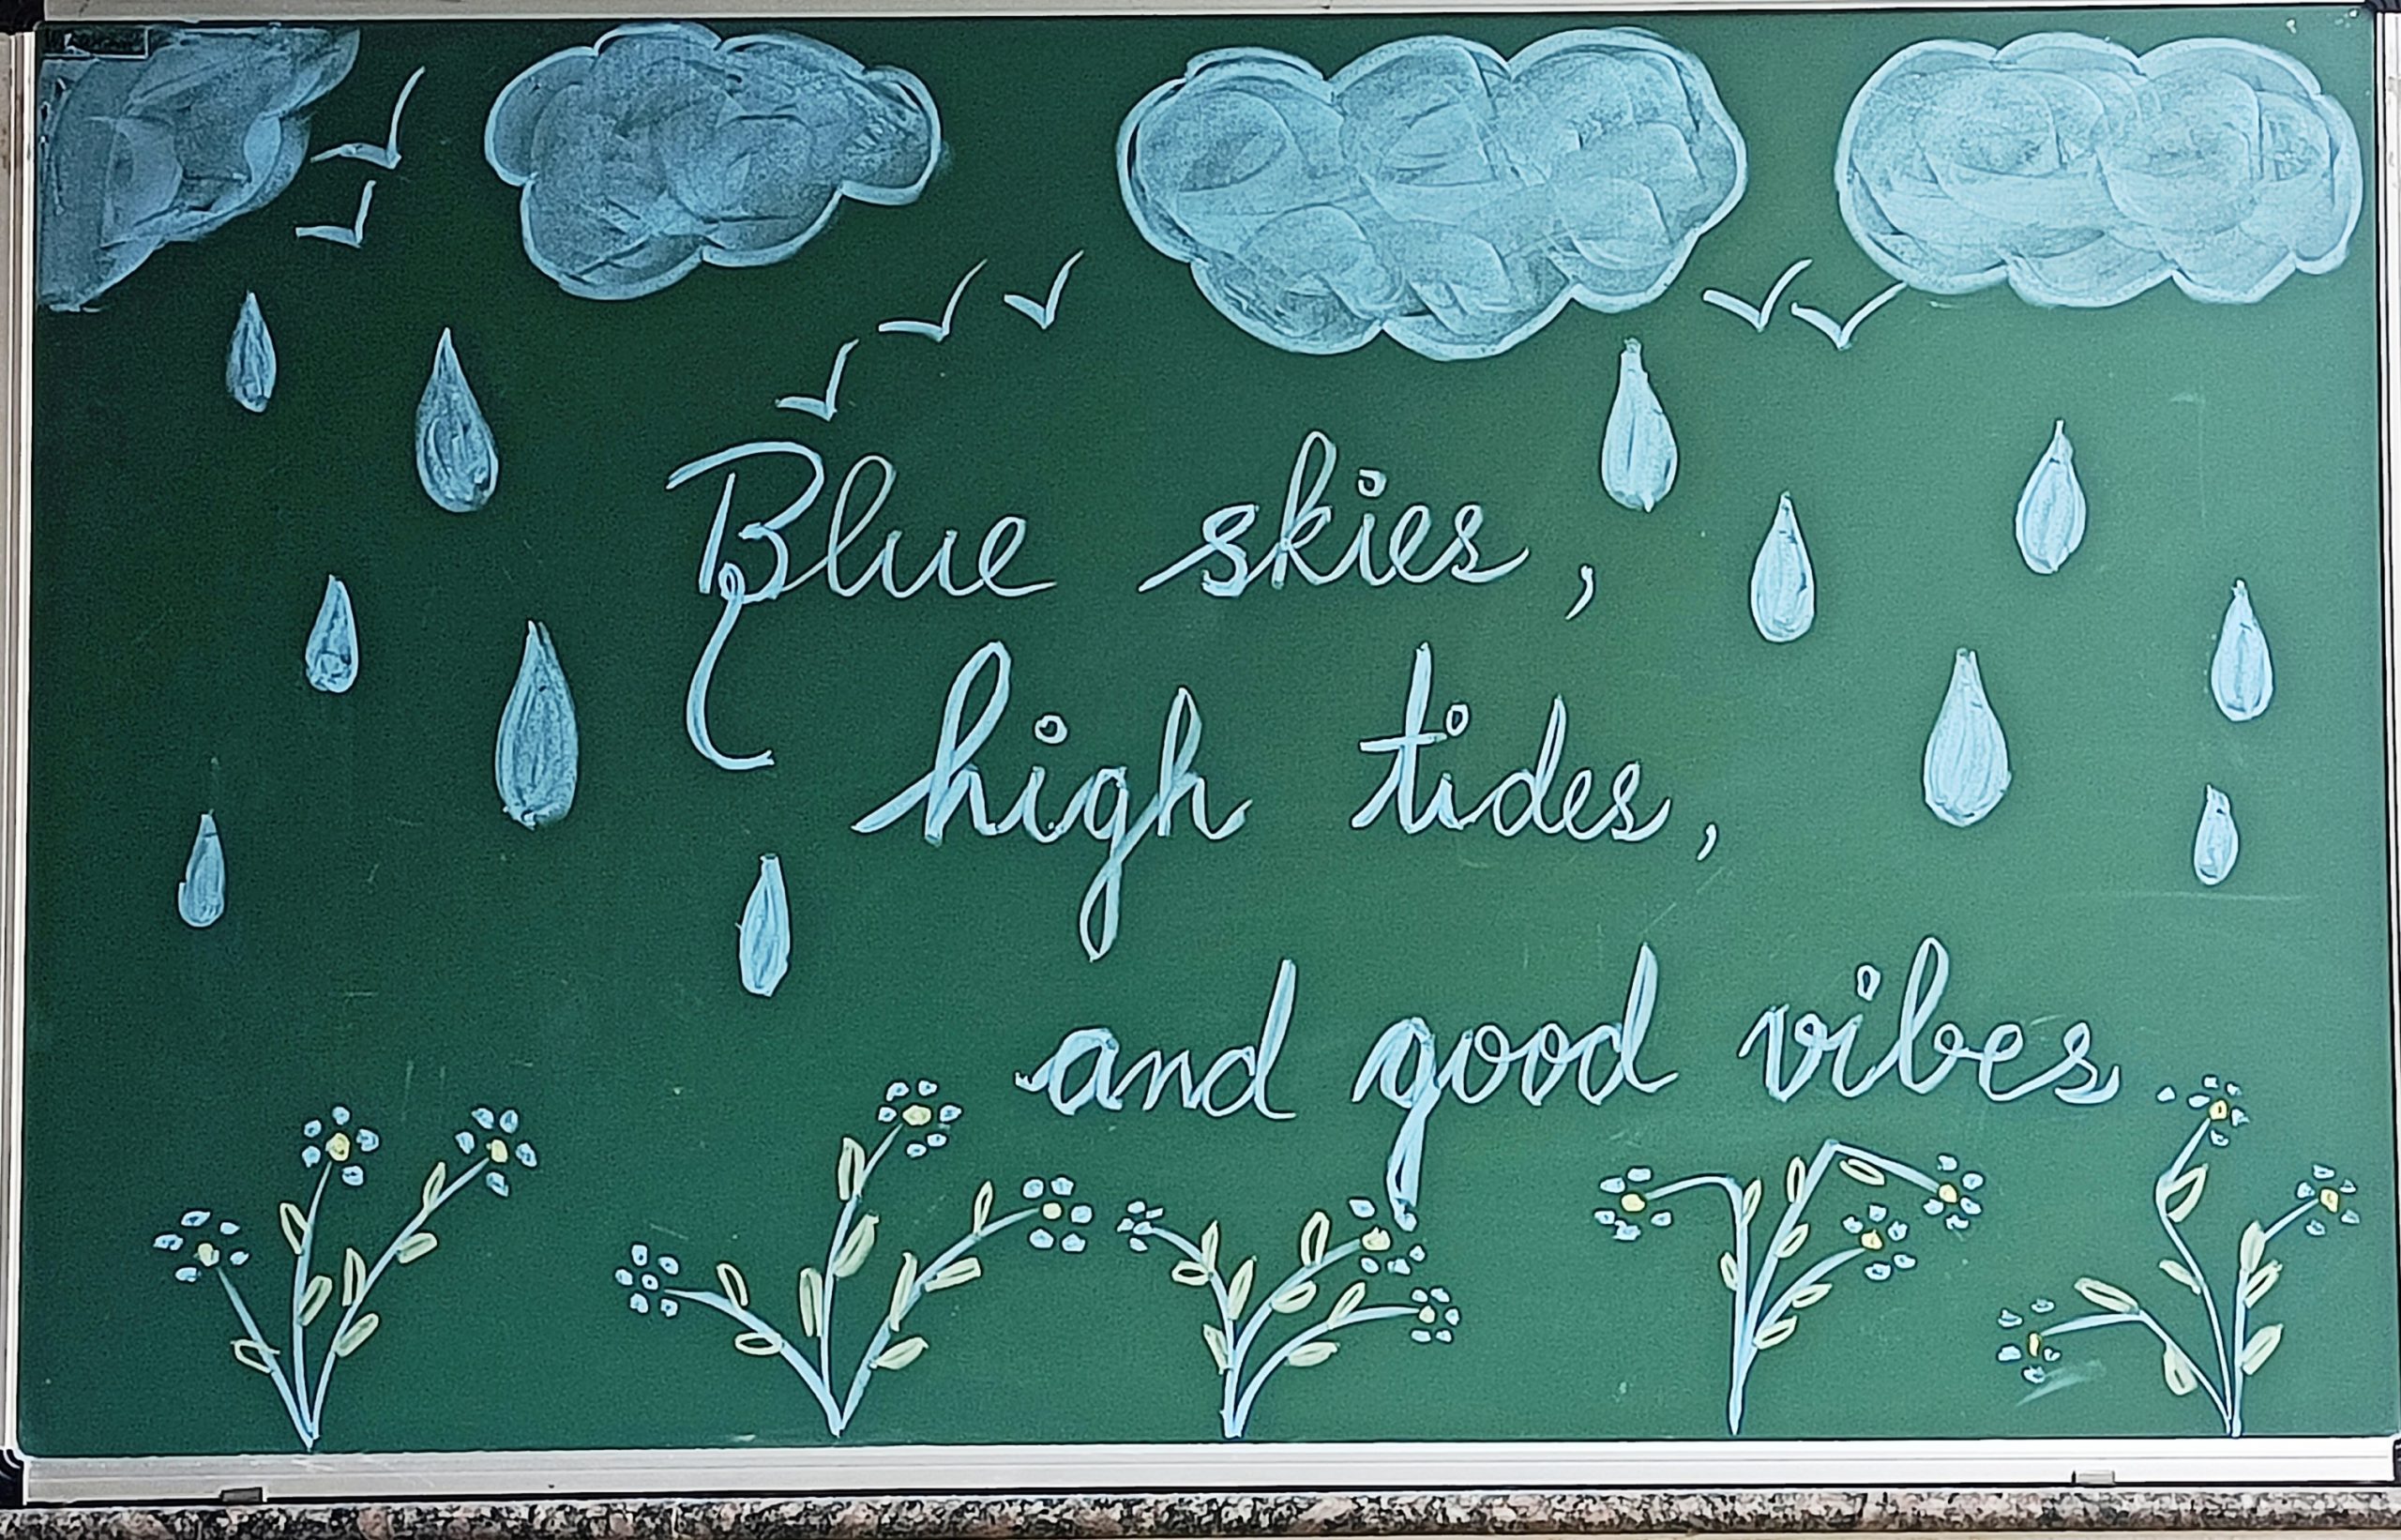 Blue skies,
high tides,
and good vibes